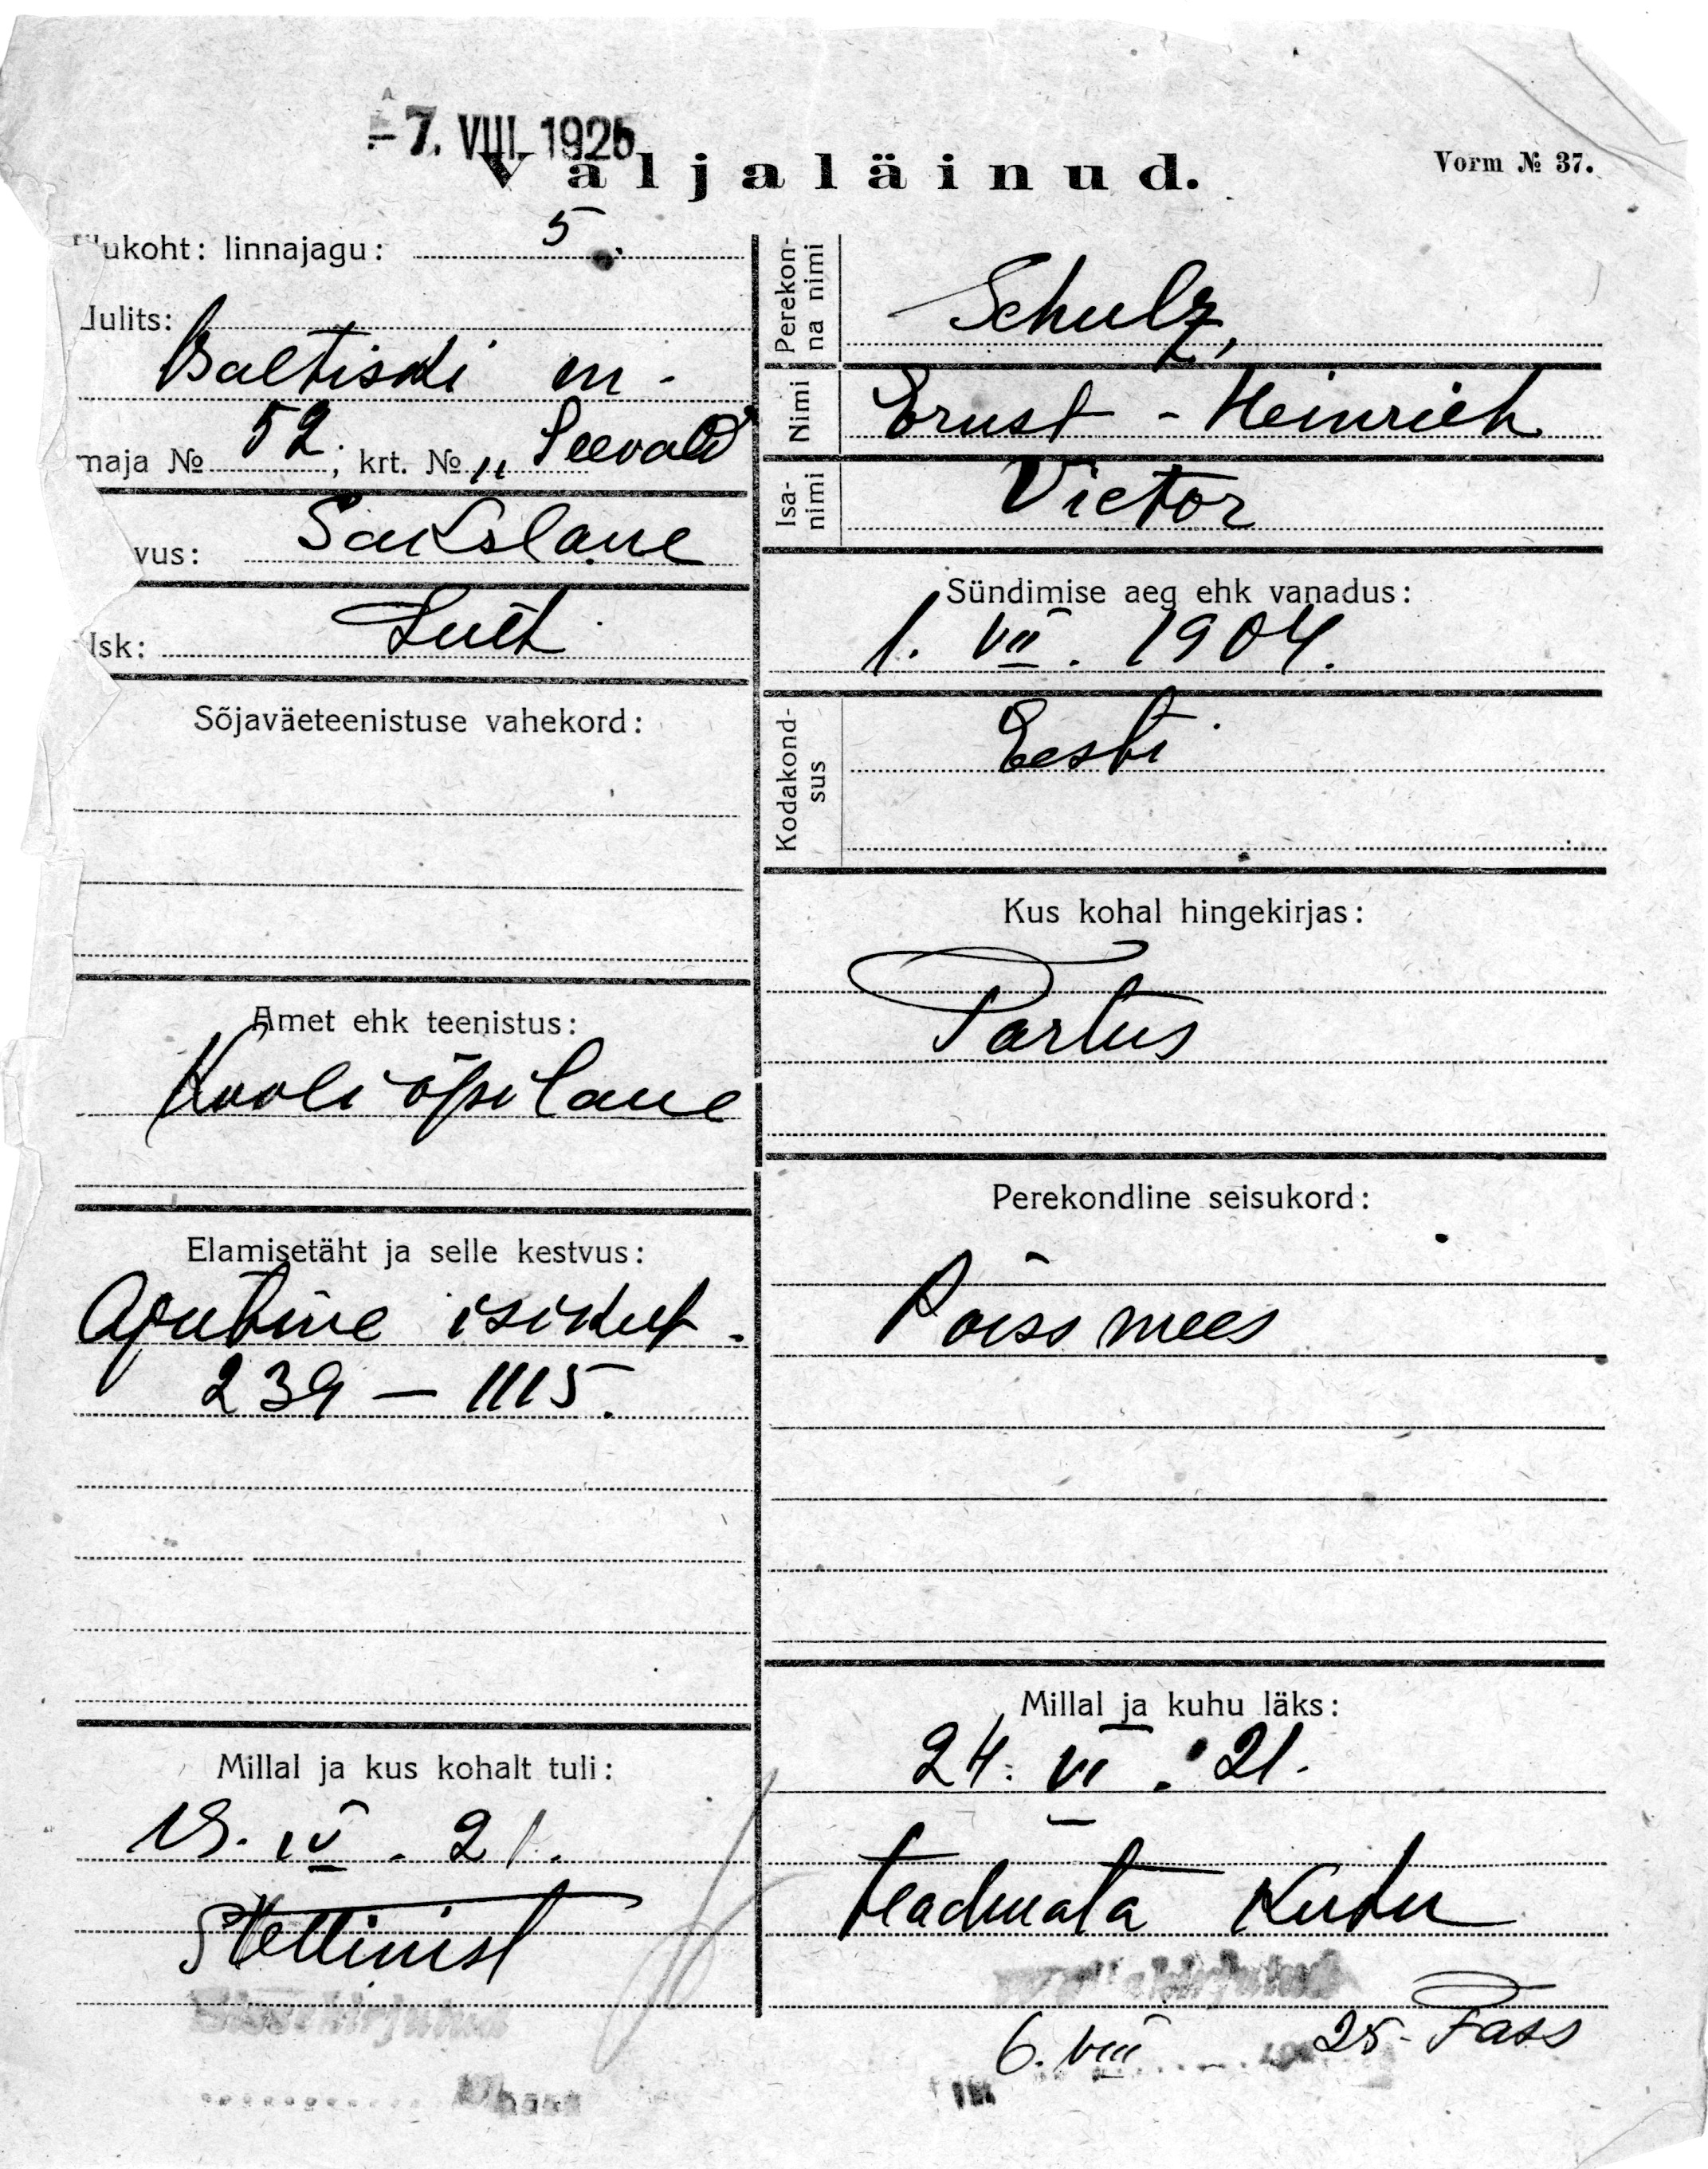 -7. VIII 1925
Väljaläinud.
Vorm № 37.
ukoht: linnajagu: 5.
ulits:
Baltiski m-
maja № 52; krt. № „Seevald"
vus: Sakslane
usk: Luth.
Sõjaväeteenistuse vahekord:
Amet ehk teenistus:
Kooliõpilane
Elamisetäht ja selle kestvus:
Ajutine isikut.
239 — 1115.
Millal ja kus kohalt tuli:
IV. 21.
Stettinist
Perekon-
na nimi
Schulz,
Nimi
Ernst - Heinrich
Isa-
nimi
Victor
Sündimise aeg ehk vanadus:
1. VII. 1904.
Kodakond-
sus
Eesti.
Kus kohal hingekirjas:
Tartus
Perekondline seisukord:
Poissmees
Millal ja kuhu läks:
24. VI. 21.
teadmata kuhu
6. VIII 25. Pass